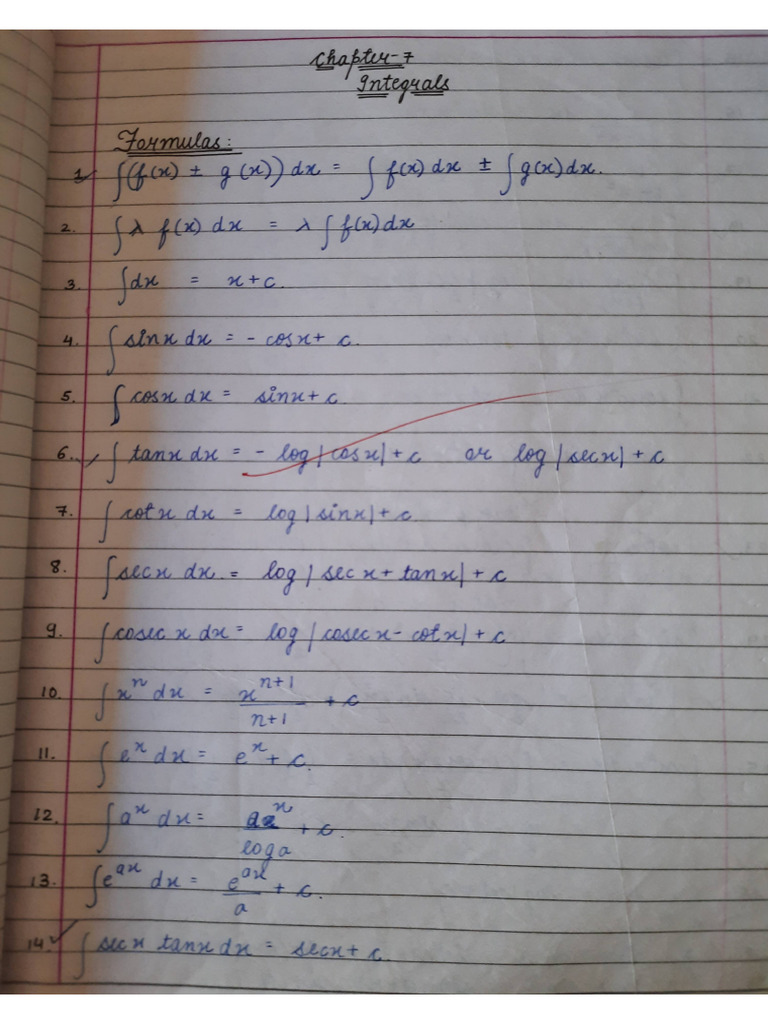 Chapter-7
Integrals
Formulas:
1. ∫(f(x) ± g(x)) dx = ∫f(x) dx ± ∫g(x) dx.
2. ∫λ f(x) dx = λ ∫f(x) dx
3. ∫dx = x + c.
4. ∫sinx dx = - cosx + c.
5. ∫cosx dx = sinx + c.
6. ∫tanx dx = - log|cosx| + c or log|secx| + c
7. ∫cotx dx = log|sinx| + c.
8. ∫secx dx = log|secx + tanx| + c
9. ∫cosec x dx = log|cosecx - cotx| + c
10. ∫xⁿ dx = xⁿ⁺¹/n+1 + c
11. ∫eˣ dx = eˣ + c.
12. ∫aˣ dx = aˣ/log a + c.
13. ∫eᵃˣ dx = eᵃˣ/a + c.
14. ∫secx tanx dx = secx + c.